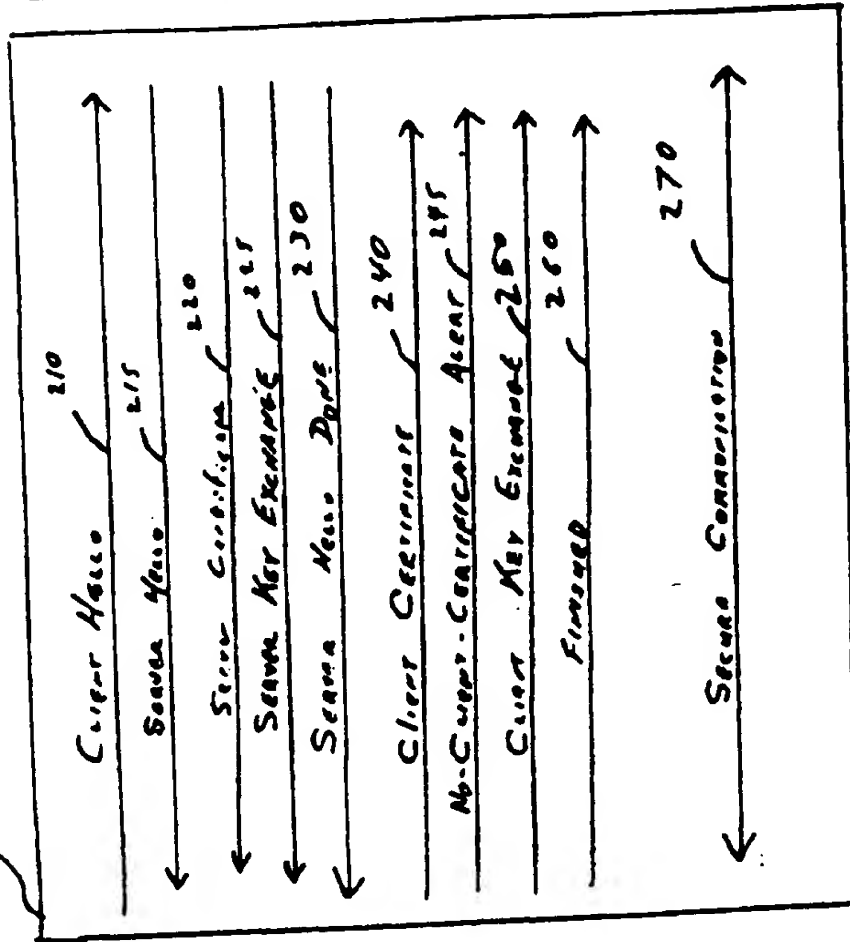 Client Hello 210
Server Hello 215
Server Certificate 220
Server Key Exchange 225
Server Hello Done 230
Client Certificate 240
No-Client-Certificate Alert 245
Client Key Exchange 250
Finished 260
Secure Communication 270